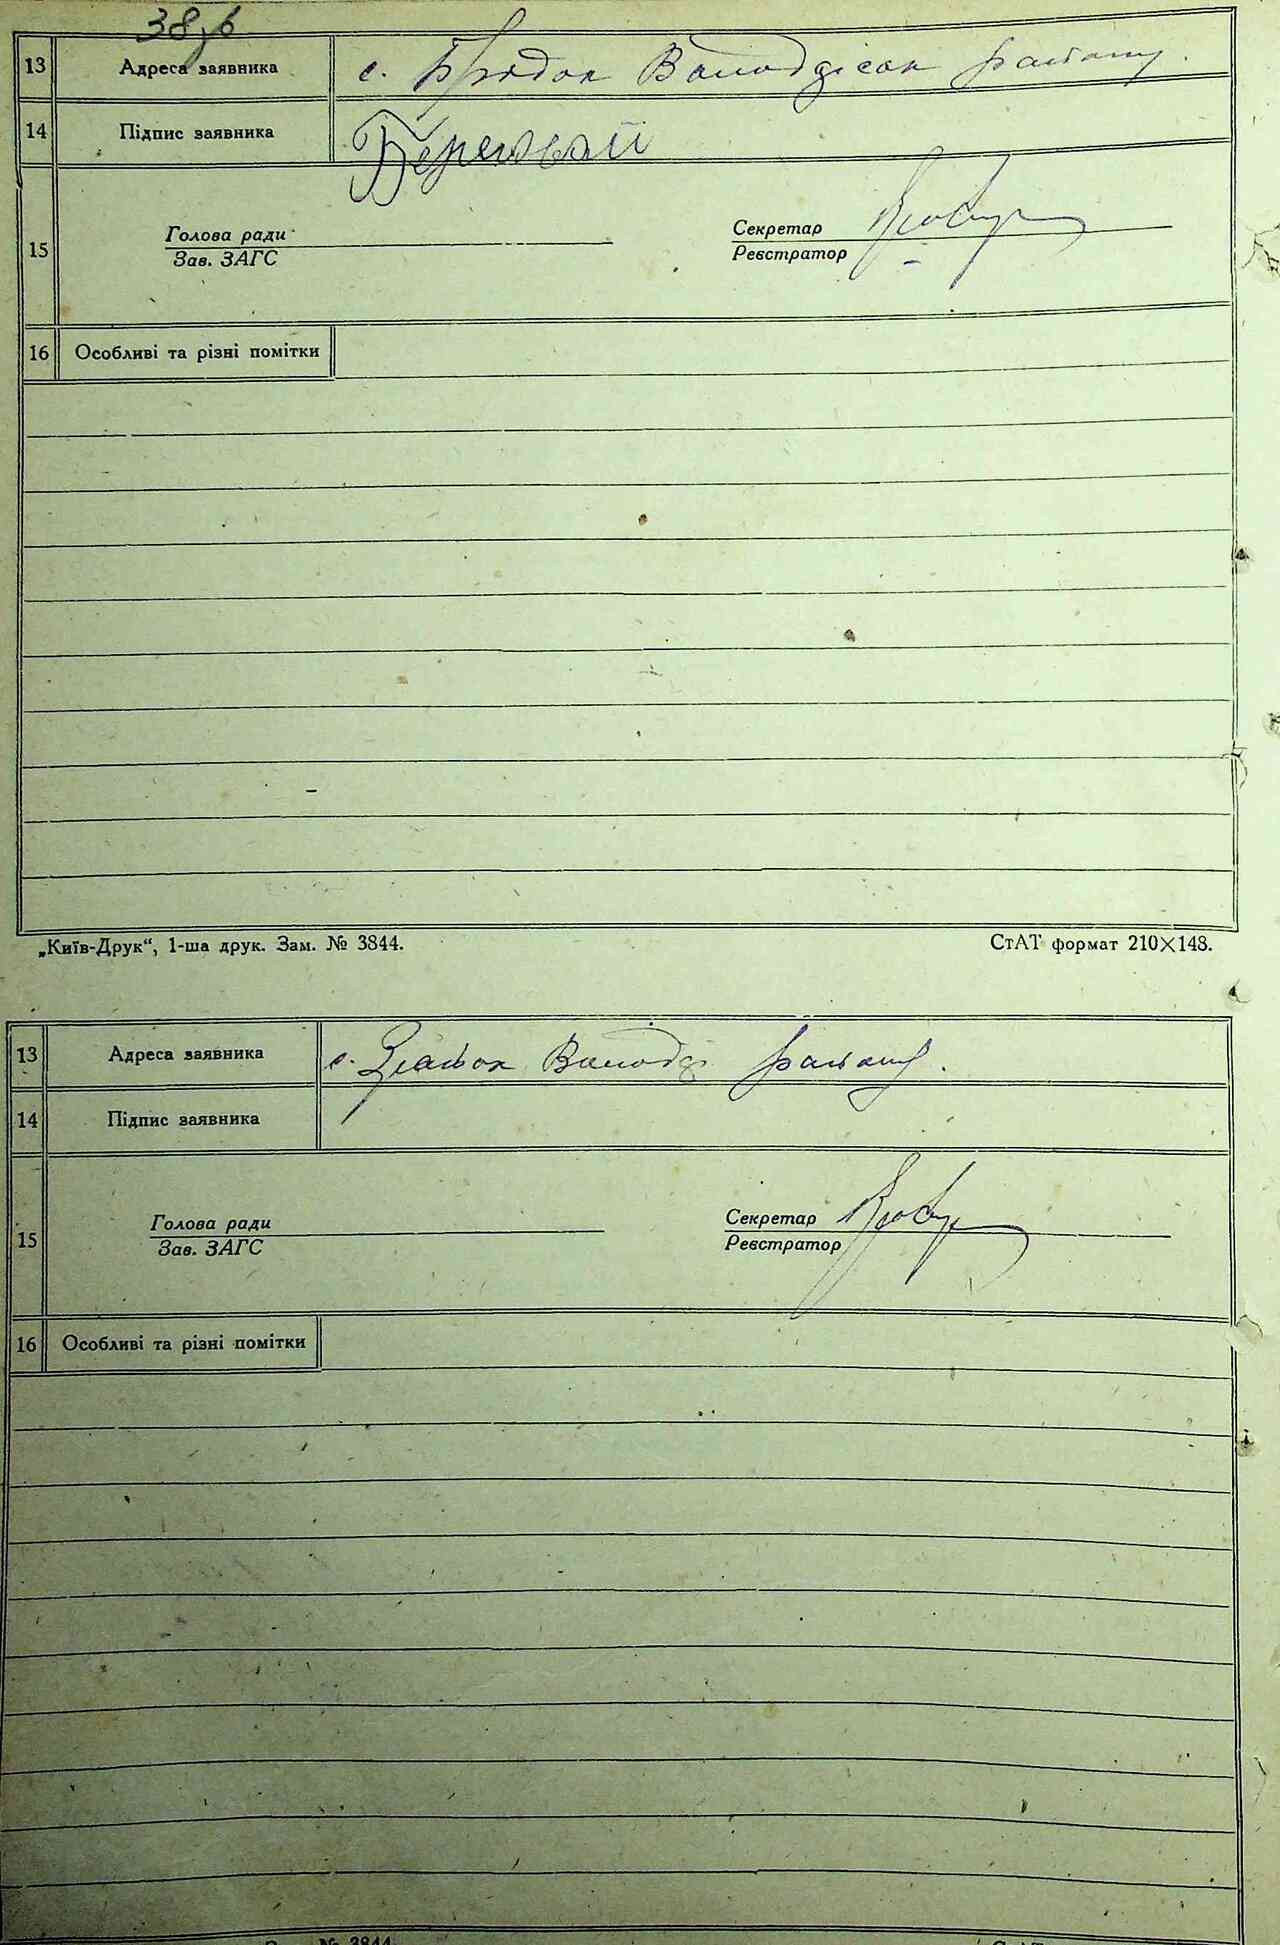 38зв
13 Адреса заявника с. Володарськ району
14 Підпис заявника
15
Голова ради
Зав. ЗАГС
Секретар
Реєстратор
16 Особливі та різні помітки
„Київ-Друк“, 1-ша друк. Зам. № 3844.
СтАТ формат 210×148.
13 Адреса заявника с. району.
14 Підпис заявника
15
Голова ради
Зав. ЗАГС
Секретар
Реєстратор
16 Особливі та різні помітки
№ 3844